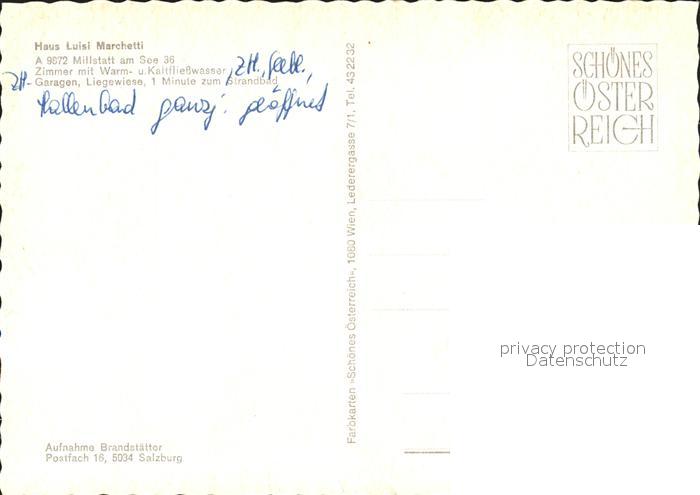 Haus Luisi Marchetti
A 9872 Millstatt am See 36
Zimmer mit Warm- u. Kaltfließwasser, ZH.,
ZH.-Garagen, Liegewiese, 1 Minute zum Strandbad
Hallenbad ganzj. geöffnet
Aufnahme Brandstätter
Postfach 16, 5034 Salzburg
Farbkarten »Schönes Österreich«, 1060 Wien, Lederergasse 7/1, Tel. 43 22 32
SCHÖNES
ÖSTER
REICH
privacy protection
Datenschutz